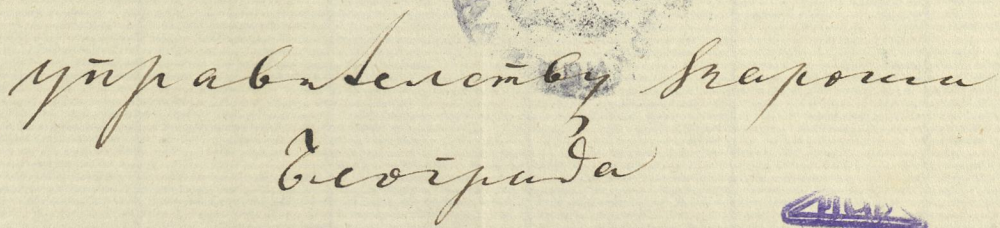 управителству вароши
Београда